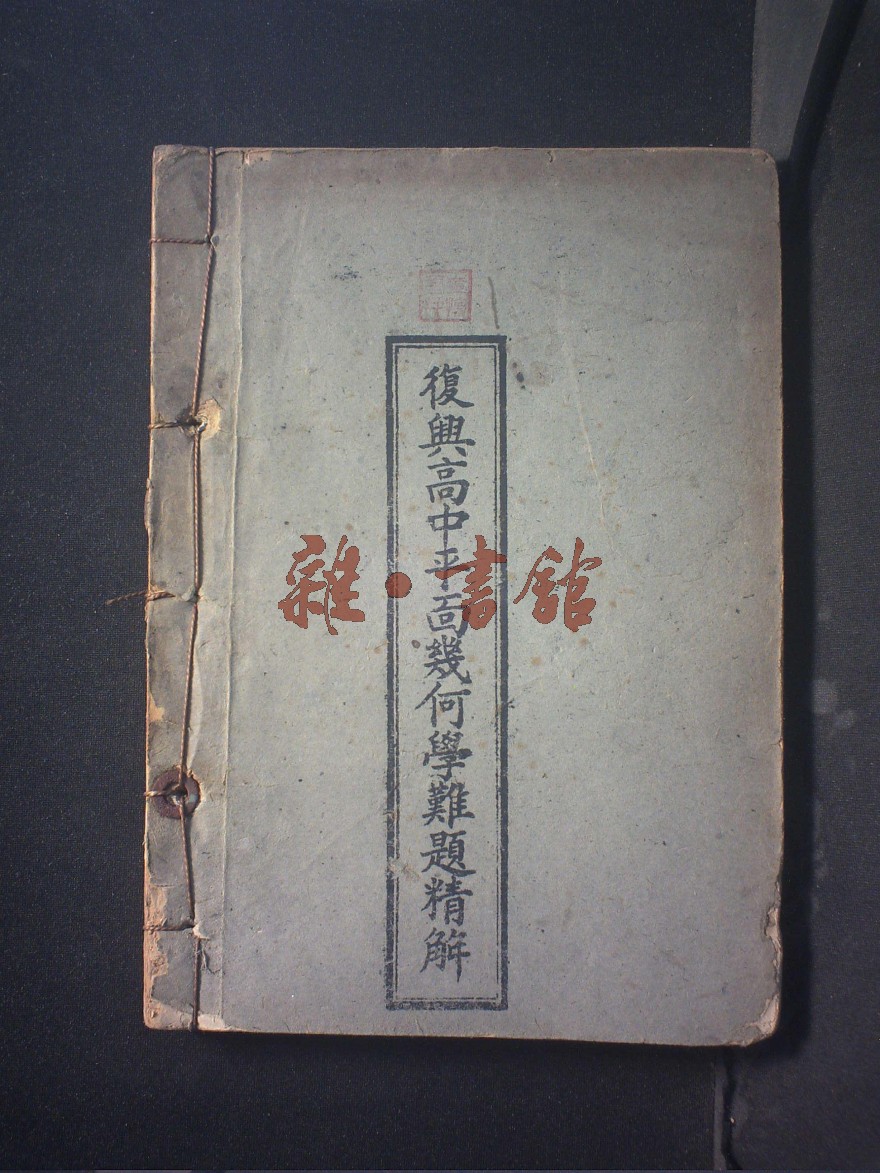 復興高中平面幾何學難題精解
雜·書館